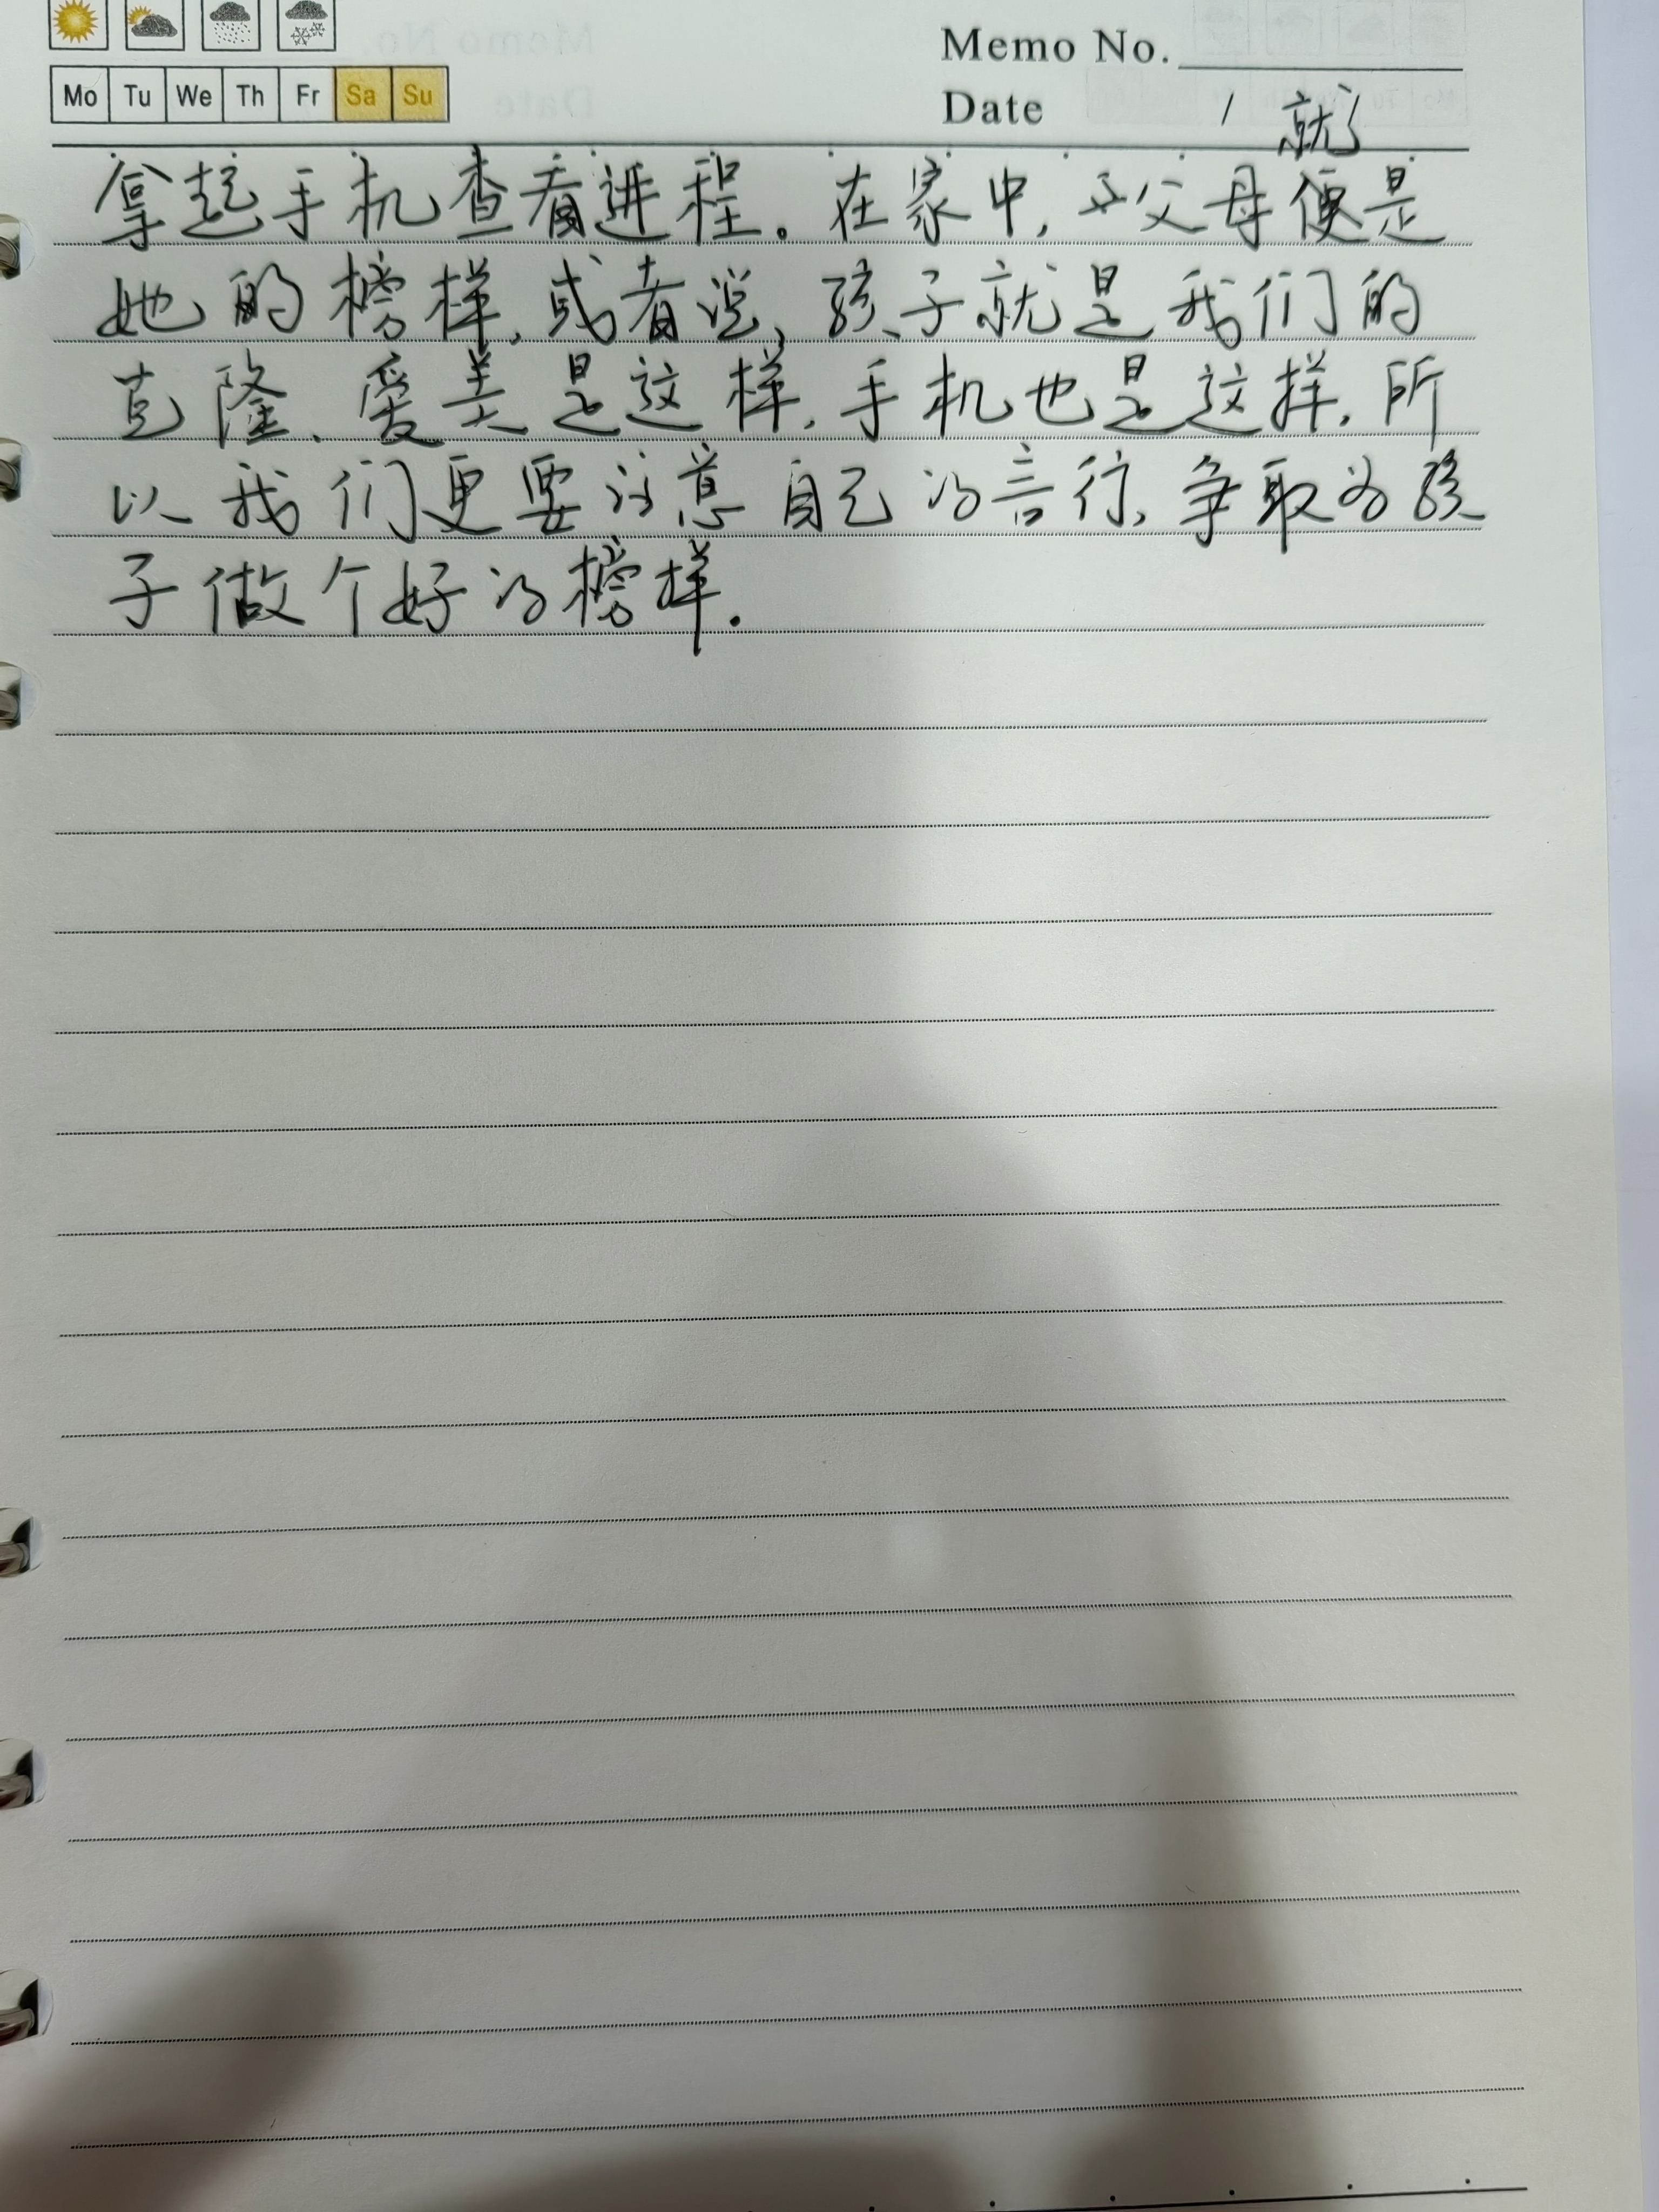 Memo No.
Mo Tu We Th Fr Sa Su
Date / 就
拿起手机查看进程。在家中,父母便是
她的榜样,或者说,孩子就是我们的
克隆、爱美是这样,手机也是这样,所
以我们更要注意自己的言行,争取为孩
子做个好的榜样.